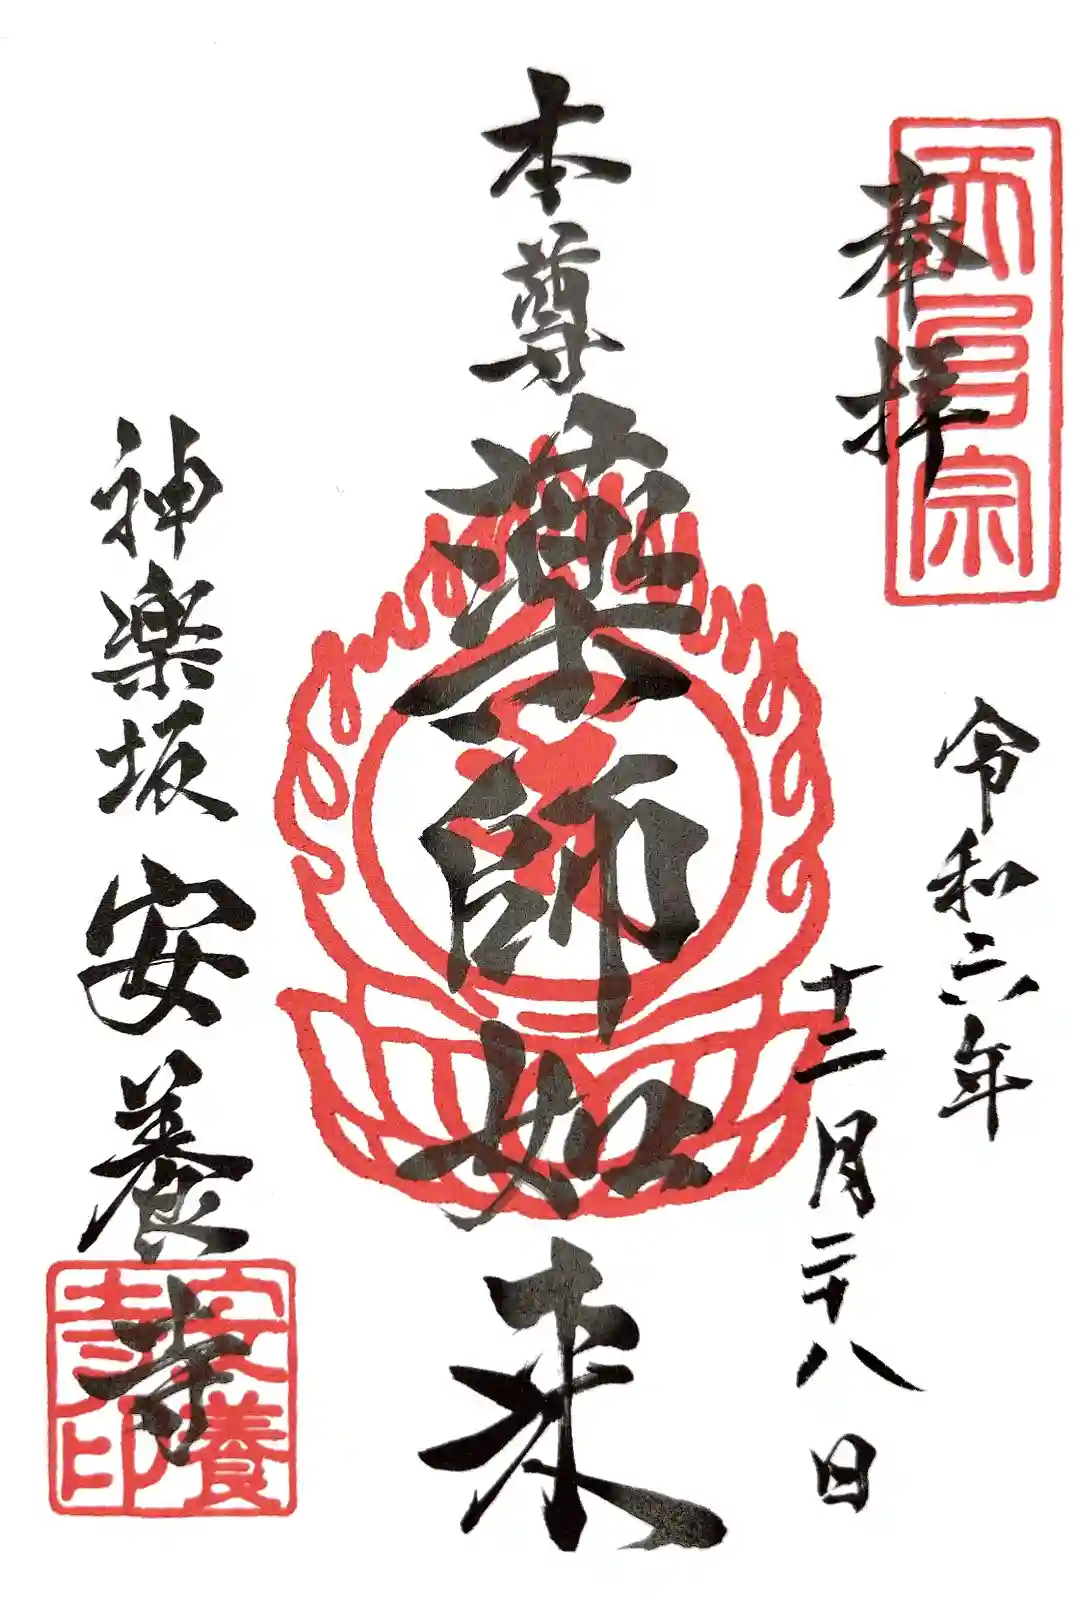 奉拝
天台宗
令和六年
十二月二十八日
本尊
薬師如来
神楽坂 安養寺
安養
寺印